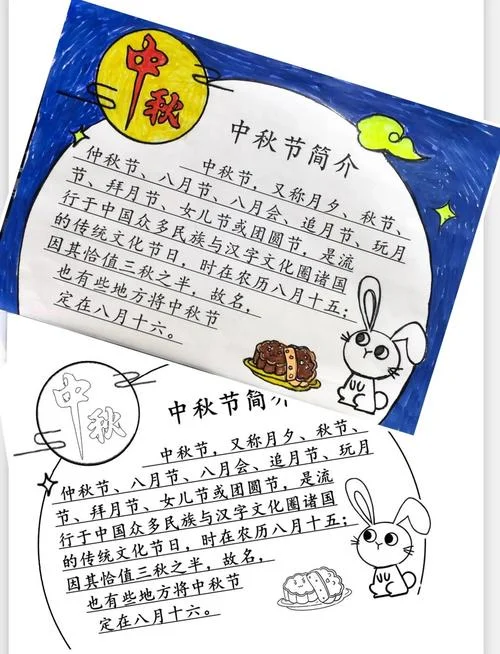 中秋
中秋节简介
中秋节，又称月夕、秋节、
仲秋节、八月节、八月会、追月节、玩月
节、拜月节、女儿节或团圆节，是流
行于中国众多民族与汉字文化圈诸国
的传统文化节日，时在农历八月十五；
因其恰值三秋之半，故名，
也有些地方将中秋节
定在八月十六。
中秋
中秋节简介
中秋节，又称月夕、秋节、
仲秋节、八月节、八月会、追月节、玩月
节、拜月节、女儿节或团圆节，是流
行于中国众多民族与汉字文化圈诸国
的传统文化节日，时在农历八月十五；
因其恰值三秋之半，故名，
也有些地方将中秋节
定在八月十六。